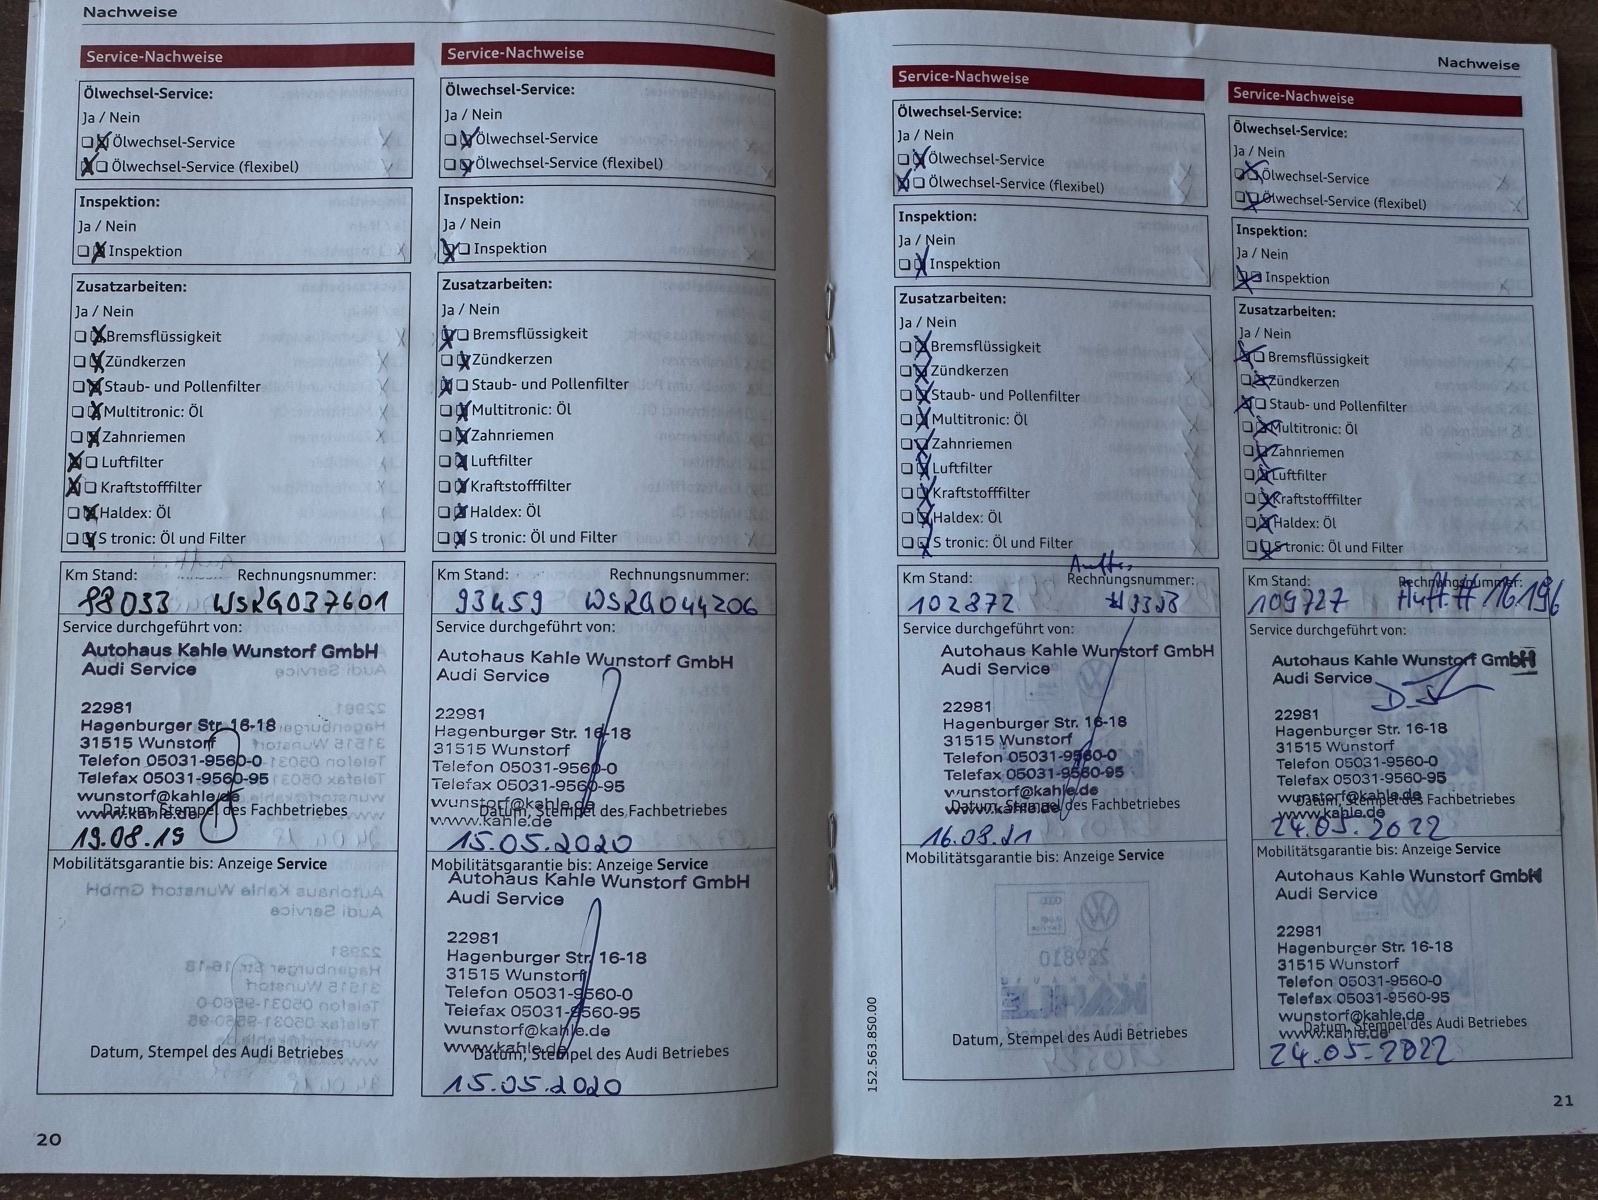 Nachweise
Service-Nachweise
Ölwechsel-Service:
Ja / Nein
Ölwechsel-Service
Ölwechsel-Service (flexibel)
Inspektion:
Ja / Nein
Inspektion
Zusatzarbeiten:
Ja / Nein
Bremsflüssigkeit
Zündkerzen
Staub- und Pollenfilter
Multitronic: Öl
Zahnriemen
Luftfilter
Kraftstofffilter
Haldex: Öl
S tronic: Öl und Filter
Km Stand: Rechnungsnummer:
88033 WSRG037601
Service durchgeführt von:
Autohaus Kahle Wunstorf GmbH
Audi Service
22981
Hagenburger Str. 16-18
31515 Wunstorf
Telefon 05031-9560-0
Telefax 05031-9560-95
wunstorf@kahle.de
www.kahle.de
Datum, Stempel des Fachbetriebes
19.08.19
Mobilitätsgarantie bis: Anzeige Service
Datum, Stempel des Audi Betriebes
20
Service-Nachweise
Ölwechsel-Service:
Ja / Nein
Ölwechsel-Service
Ölwechsel-Service (flexibel)
Inspektion:
Ja / Nein
Inspektion
Zusatzarbeiten:
Ja / Nein
Bremsflüssigkeit
Zündkerzen
Staub- und Pollenfilter
Multitronic: Öl
Zahnriemen
Luftfilter
Kraftstofffilter
Haldex: Öl
S tronic: Öl und Filter
Km Stand: Rechnungsnummer:
93459 WSRG044206
Service durchgeführt von:
Autohaus Kahle Wunstorf GmbH
Audi Service
22981
Hagenburger Str. 16-18
31515 Wunstorf
Telefon 05031-9560-0
Telefax 05031-9560-95
wunstorf@kahle.de
www.kahle.de
Datum, Stempel des Fachbetriebes
15.05.2020
Mobilitätsgarantie bis: Anzeige Service
Autohaus Kahle Wunstorf GmbH
Audi Service
22981
Hagenburger Str. 16-18
31515 Wunstorf
Telefon 05031-9560-0
Telefax 05031-9560-95
wunstorf@kahle.de
www.kahle.de
Datum, Stempel des Audi Betriebes
15.05.2020
Nachweise
Service-Nachweise
Ölwechsel-Service:
Ja / Nein
Ölwechsel-Service
Ölwechsel-Service (flexibel)
Inspektion:
Ja / Nein
Inspektion
Zusatzarbeiten:
Ja / Nein
Bremsflüssigkeit
Zündkerzen
Staub- und Pollenfilter
Multitronic: Öl
Zahnriemen
Luftfilter
Kraftstofffilter
Haldex: Öl
S tronic: Öl und Filter
Km Stand: Rechnungsnummer:
102872
Service durchgeführt von:
Autohaus Kahle Wunstorf GmbH
Audi Service
22981
Hagenburger Str. 16-18
31515 Wunstorf
Telefon 05031-9560-0
Telefax 05031-9560-95
wunstorf@kahle.de
www.kahle.de
Datum, Stempel des Fachbetriebes
16.08.21
Mobilitätsgarantie bis: Anzeige Service
Datum, Stempel des Audi Betriebes
152.563.850.00
Service-Nachweise
Ölwechsel-Service:
Ja / Nein
Ölwechsel-Service
Ölwechsel-Service (flexibel)
Inspektion:
Ja / Nein
Inspektion
Zusatzarbeiten:
Ja / Nein
Bremsflüssigkeit
Zündkerzen
Staub- und Pollenfilter
Multitronic: Öl
Zahnriemen
Luftfilter
Kraftstofffilter
Haldex: Öl
S tronic: Öl und Filter
Km Stand: Rechnungsnummer:
109727 Auft. # 16196
Service durchgeführt von:
Autohaus Kahle Wunstorf GmbH
Audi Service
22981
Hagenburger Str. 16-18
31515 Wunstorf
Telefon 05031-9560-0
Telefax 05031-9560-95
wunstorf@kahle.de
www.kahle.de
Datum, Stempel des Fachbetriebes
24.05.2022
Mobilitätsgarantie bis: Anzeige Service
Autohaus Kahle Wunstorf GmbH
Audi Service
22981
Hagenburger Str. 16-18
31515 Wunstorf
Telefon 05031-9560-0
Telefax 05031-9560-95
wunstorf@kahle.de
www.kahle.de
Datum, Stempel des Audi Betriebes
24.05.2022
21